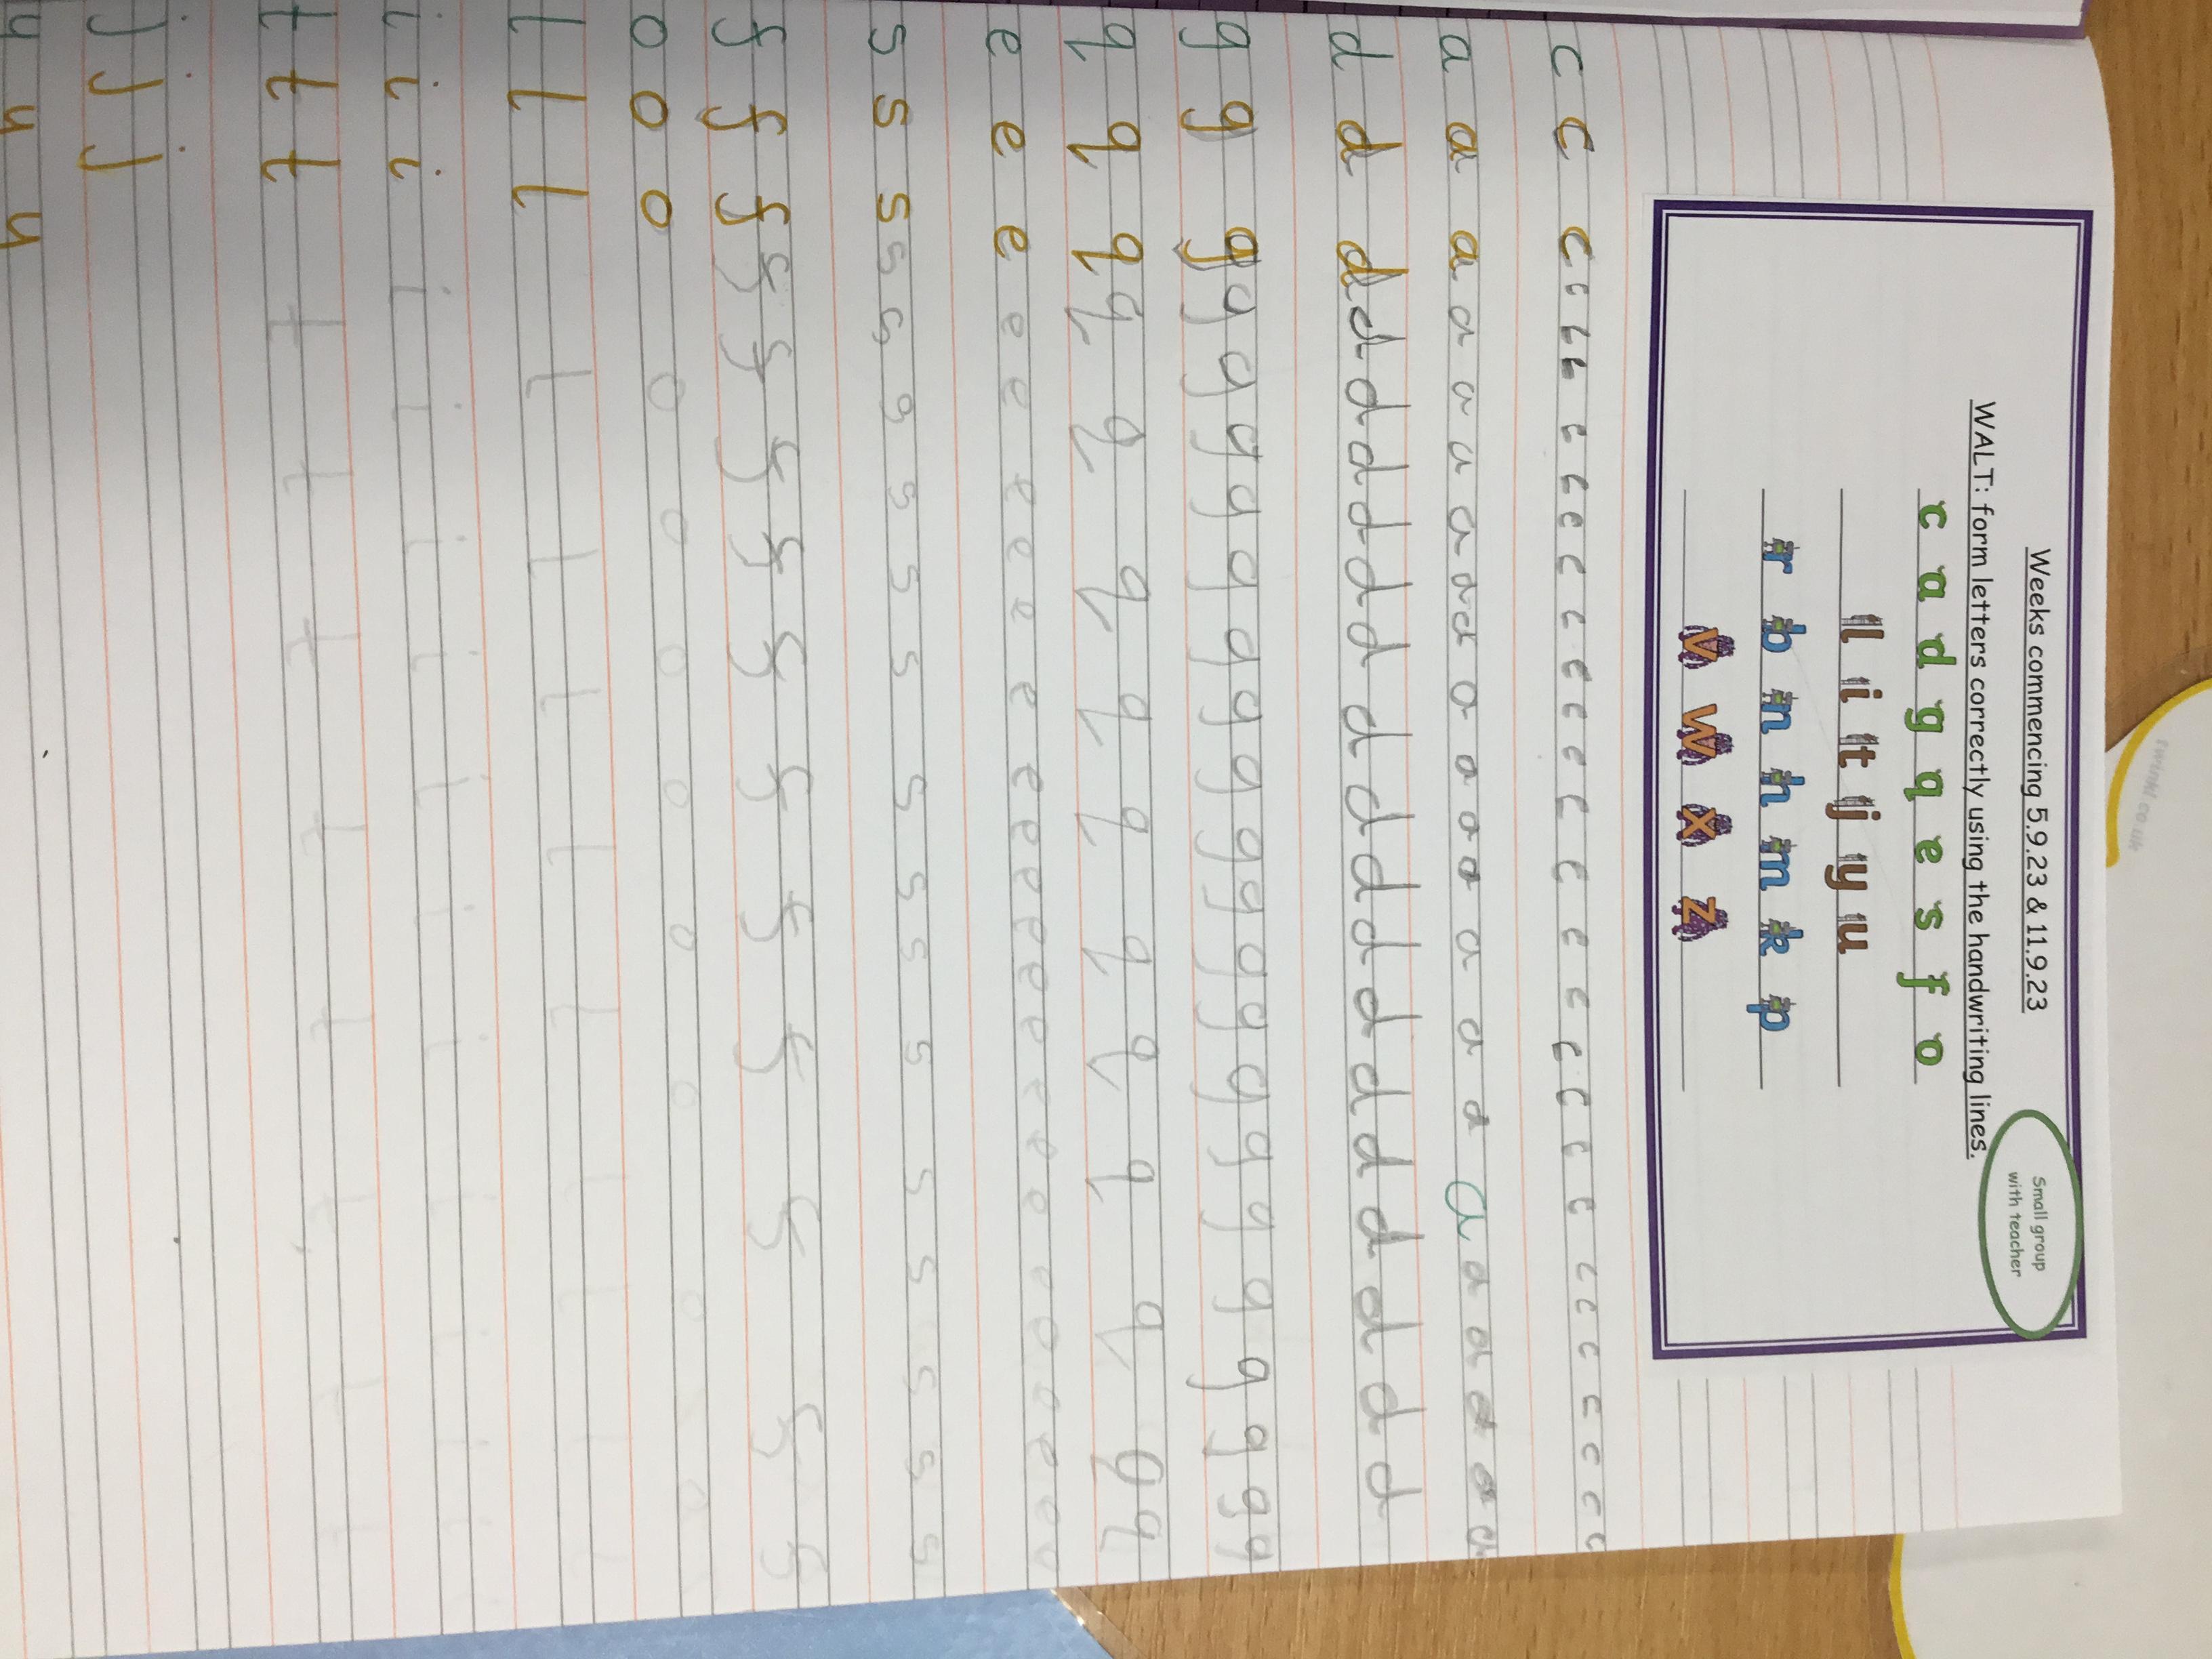 Weeks commencing 5.9.23 & 11.9.23
Small group
with teacher
WALT: form letters correctly using the handwriting lines.
c a d g q e s f o
l i t j y u
r b n h m k p
v w x z
twinkl.co.uk
c c c c c c c c c c c c c c c c c c c c c c c c c c c c c c c c
a a a a a a a a a a o a a a a a a a a a a a a a a a a
d d d d d d d d d d d d d d d d d d d d d d d d d
g g g g g g g g g g g g g g g g g g g g g g g g
q q q q q q q q q q q q q q q
e e e e e e e e e e e e e e e e e e e e e e e e e
s s s s s s s s s s s s s s s s s s s s
f f f f f f f f f f f f f f f f
o o o o o o o o o o o o
l l l l l l l l l l l
i i i i i i i i i i i i i i
t t t t t t t t t t t t
j j j
y y y